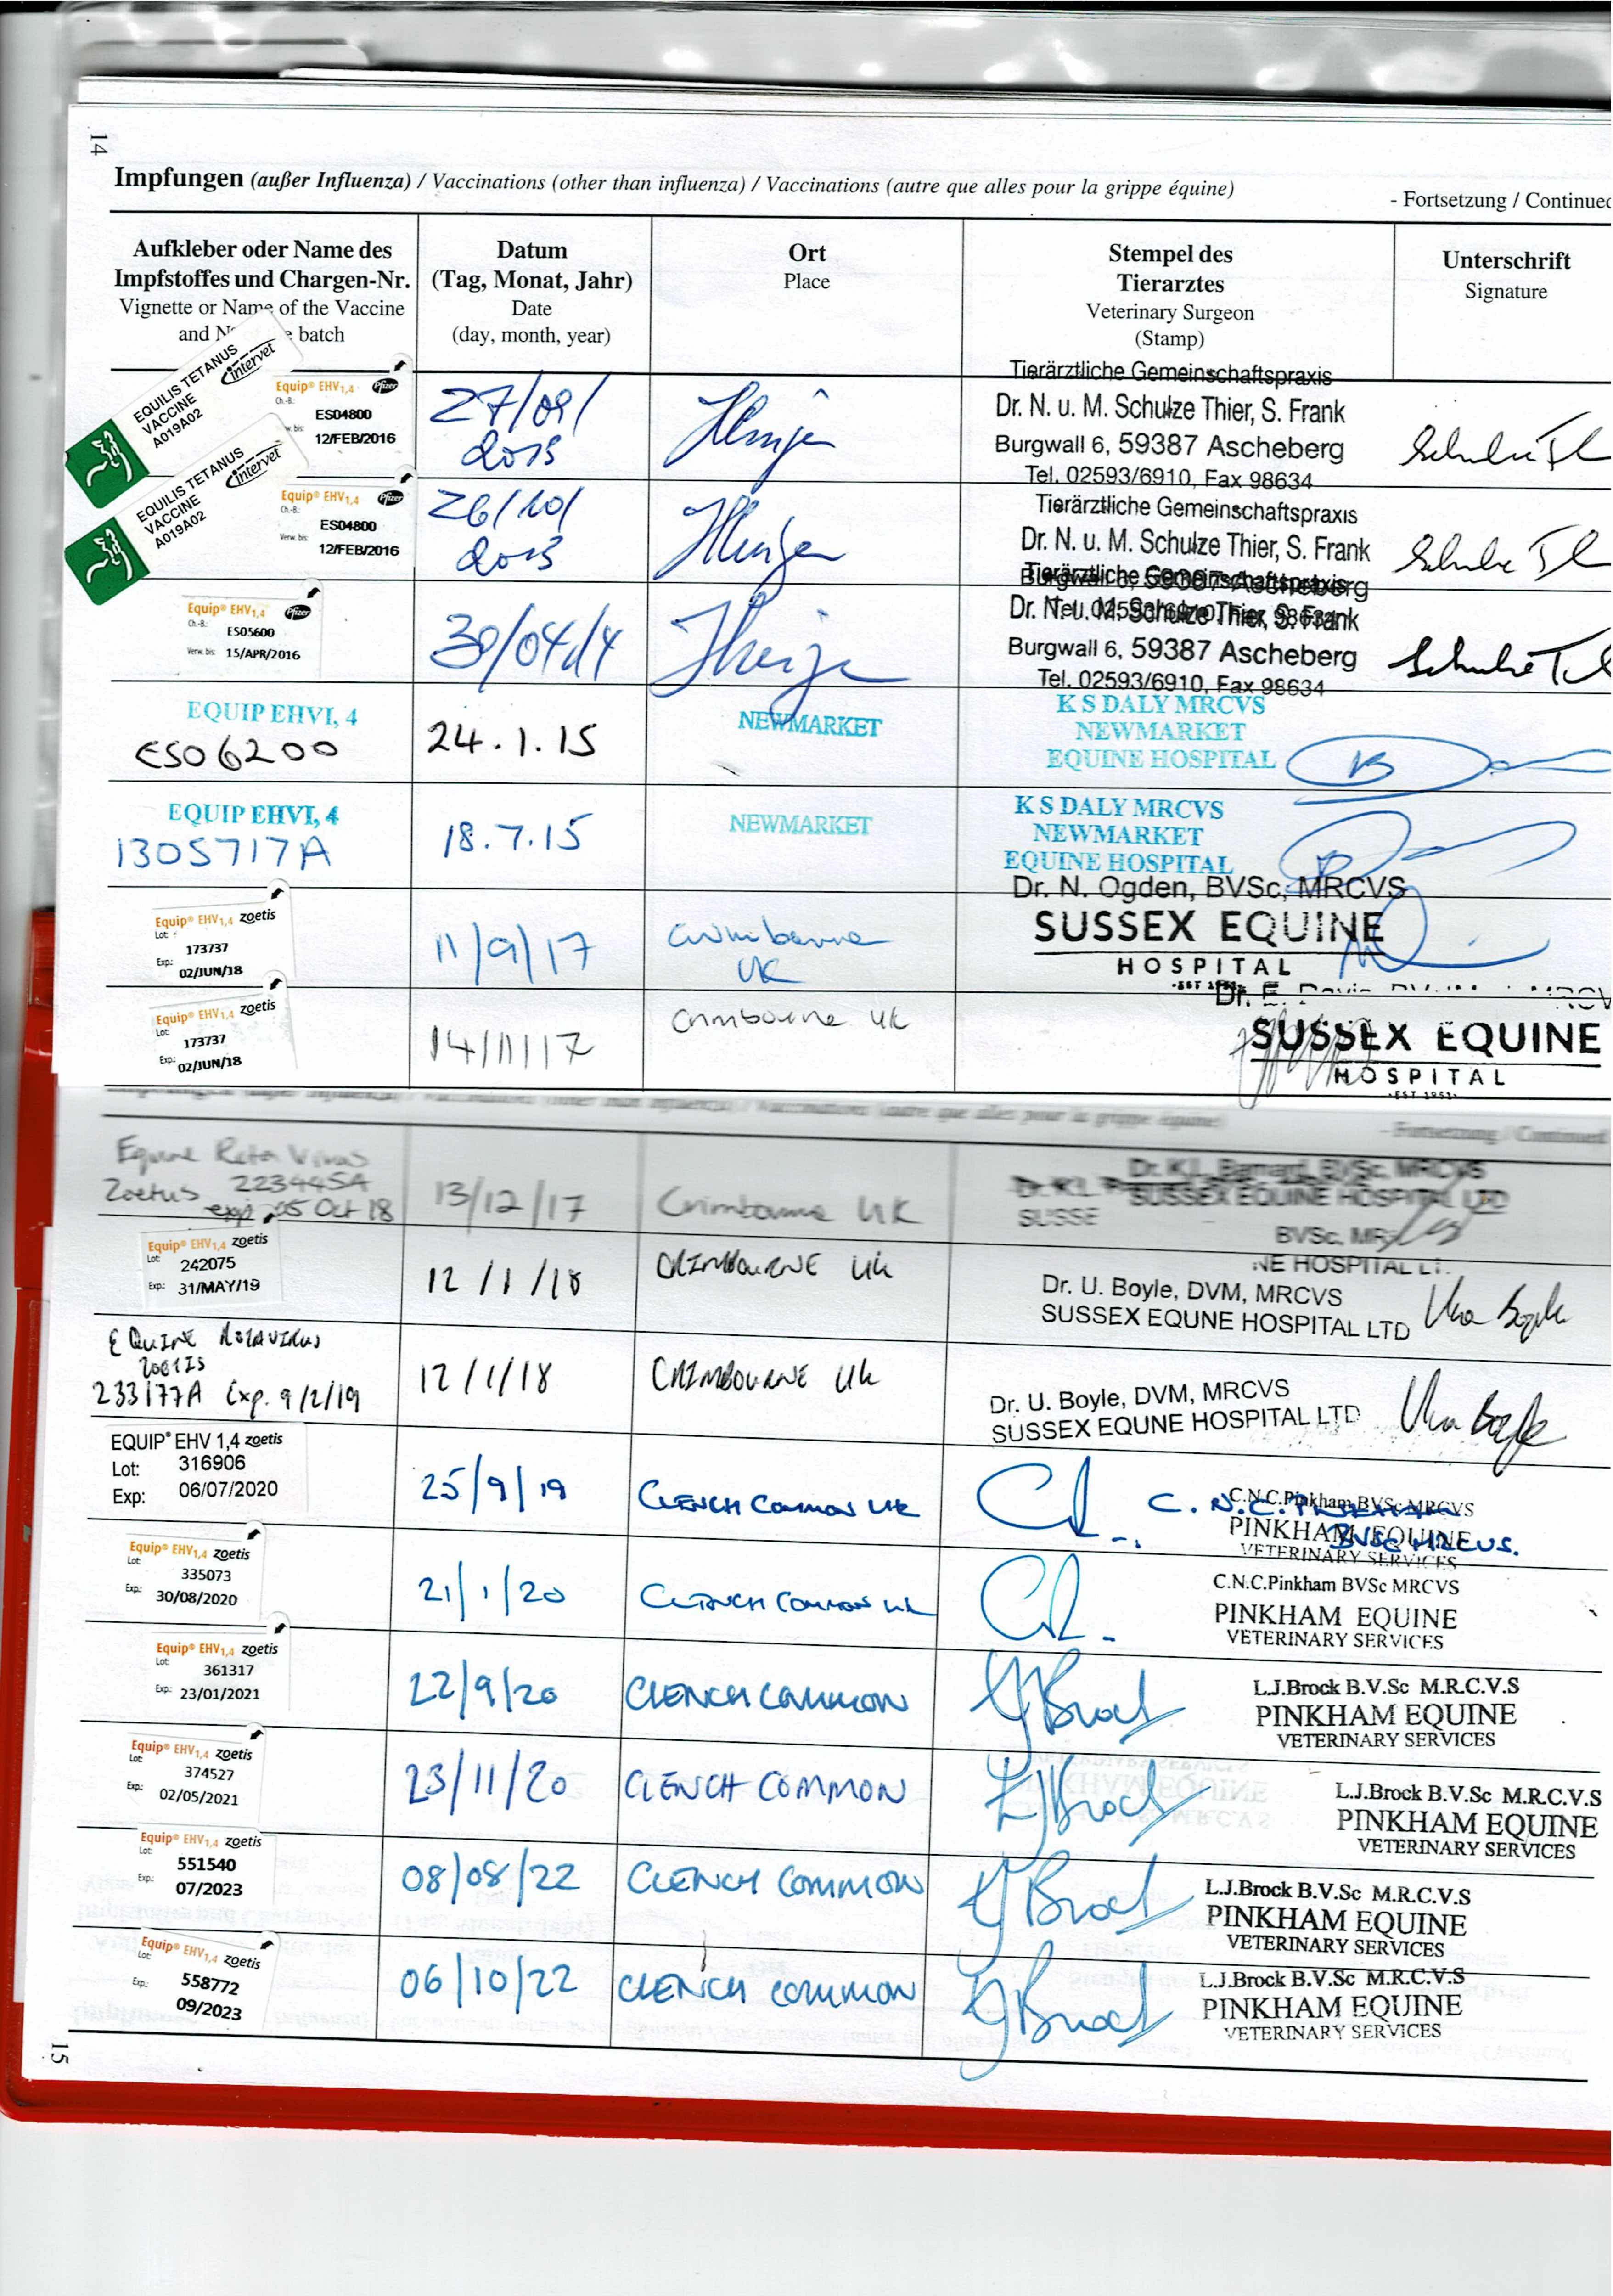 14
Impfungen (außer Influenza) / Vaccinations (other than influenza) / Vaccinations (autre que alles pour la grippe équine)
- Fortsetzung / Continued
Aufkleber oder Name des Impfstoffes und Chargen-Nr.
Vignette or Name of the Vaccine and N batch
Datum
(Tag, Monat, Jahr)
Date
(day, month, year)
Ort
Place
Stempel des
Tierarztes
Veterinary Surgeon
(Stamp)
Unterschrift
Signature
EQUILIS TETANUS
VACCINE
A019A02
intervet
Equip® EHV1,4 Pfizer
Ch.-B.:
ES04800
w. bis: 12/FEB/2016
27/09/
2013
Tierärztliche Gemeinschaftspraxis
Dr. N. u. M. Schulze Thier, S. Frank
Burgwall 6, 59387 Ascheberg
Tel. 02593/6910, Fax 98634
EQUILIS TETANUS
VACCINE
A019A02
intervet
Equip® EHV1,4 Pfizer
Ch.-B.:
ES04800
Verw. bis: 12/FEB/2016
26/10/
2013
Tierärztliche Gemeinschaftspraxis
Dr. N. u. M. Schulze Thier, S. Frank
Equip® EHV1,4 Pfizer
Ch.-B.:
ES05600
Verw. bis: 15/APR/2016
30/04/14
Tierärztliche Gemeinschaftspraxis
Dr. N. u. M. Schulze Thier, S. Frank
Burgwall 6, 59387 Ascheberg
Tel. 02593/6910, Fax 98634
EQUIP EHVI, 4
ES06200
24.1.15
NEWMARKET
K S DALY MRCVS
NEWMARKET
EQUINE HOSPITAL
EQUIP EHVI, 4
130S717A
18.7.15
NEWMARKET
K S DALY MRCVS
NEWMARKET
EQUINE HOSPITAL
Equip® EHV1,4 zoetis
Lot:
173737
Exp: 02/JUN/18
11/9/17
Crimbourne
UK
Dr. N. Ogden, BVSc, MRCVS
SUSSEX EQUINE
HOSPITAL
·EST 1951·
Equip® EHV1,4 zoetis
Lot:
173737
Exp: 02/JUN/18
14/11/17
Crimbourne UK
SUSSEX EQUINE
HOSPITAL
·EST 1951·
- Fortsetzung / Continued
Equine Rota Virus
Zoetus 223445A
exp 05 Oct 18
13/12/17
Crimbourne UK
Dr. K.L. Barnard, BVSc, MRCVS
SUSSEX EQUINE HOSPITAL LTD
SUSSE
BVSc, MR
NE HOSPITAL
Equip® EHV1,4 zoetis
Lot: 242075
Exp: 31/MAY/19
12/1/18
CRIMBOURNE UK
Dr. U. Boyle, DVM, MRCVS
SUSSEX EQUNE HOSPITAL LTD
Una Boyle
EQUINE ROTAVIRUS
ZOETIS
233177A Exp. 9/2/19
12/1/18
CRIMBOURNE UK
Dr. U. Boyle, DVM, MRCVS
SUSSEX EQUNE HOSPITAL LTD
Una Boyle
EQUIP® EHV 1,4 zoetis
Lot: 316906
Exp: 06/07/2020
25/9/19
CLENCH COMMON UK
C. N. C. PINKHAM
BVSc MRCVS.
C.N.C.Pinkham BVSc MRCVS
PINKHAM EQUINE
VETERINARY SERVICES
Equip® EHV1,4 zoetis
Lot: 335073
Exp: 30/08/2020
21/1/20
CLENCH COMMON UK
C.N.C.Pinkham BVSc MRCVS
PINKHAM EQUINE
VETERINARY SERVICES
Equip® EHV1,4 zoetis
Lot: 361317
Exp: 23/01/2021
22/9/20
CLENCH COMMON
LJBrock
L.J.Brock B.V.Sc M.R.C.V.S
PINKHAM EQUINE
VETERINARY SERVICES
Equip® EHV1,4 zoetis
Lot: 374527
Exp: 02/05/2021
23/11/20
CLENCH COMMON
LJBrock
L.J.Brock B.V.Sc M.R.C.V.S
PINKHAM EQUINE
VETERINARY SERVICES
Equip® EHV1,4 zoetis
Lot: 551540
Exp: 07/2023
08/08/22
CLENCH COMMON
LJBrock
L.J.Brock B.V.Sc M.R.C.V.S
PINKHAM EQUINE
VETERINARY SERVICES
Equip® EHV1,4 zoetis
Lot: 558772
Exp: 09/2023
06/10/22
CLENCH COMMON
LJBrock
L.J.Brock B.V.Sc M.R.C.V.S
PINKHAM EQUINE
VETERINARY SERVICES
15